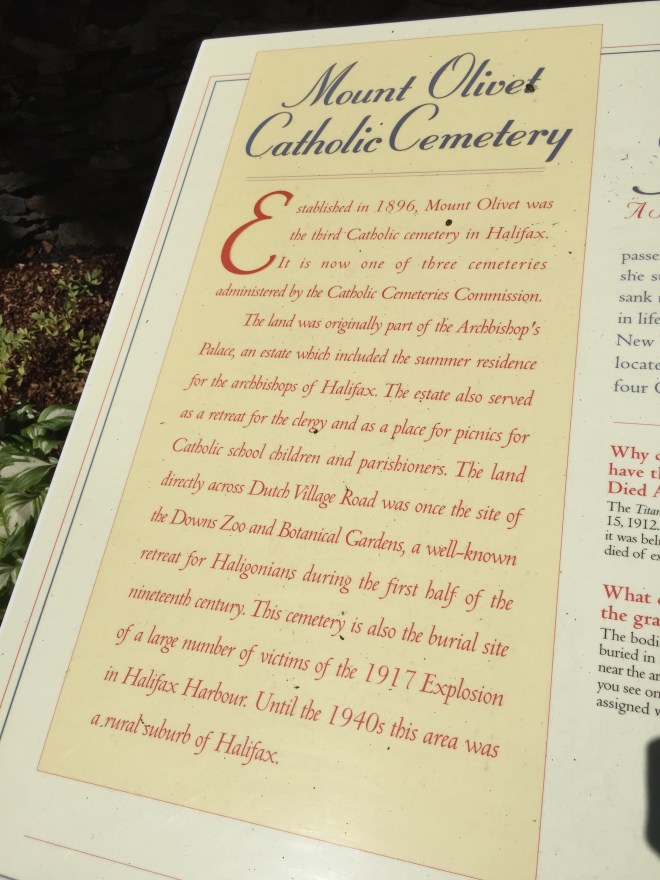 Mount Olivet
Catholic Cemetery
Established in 1896, Mount Olivet was
the third Catholic cemetery in Halifax.
It is now one of three cemeteries
administered by the Catholic Cemeteries Commission.
The land was originally part of the Archbishop's
Palace, an estate which included the summer residence
for the archbishops of Halifax. The estate also served
as a retreat for the clergy and as a place for picnics for
Catholic school children and parishioners. The land
directly across Dutch Village Road was once the site of
the Downs Zoo and Botanical Gardens, a well-known
retreat for Haligonians during the first half of the
nineteenth century. This cemetery is also the burial site
of a large number of victims of the 1917 Explosion
in Halifax Harbour. Until the 1940s this area was
a rural suburb of Halifax.
A
passe
she s
sank
in life
New
locate
four
Why
have th
Died A
The Titan
15, 1912.
it was beli
died of ex
What
the gra
The bodi
buried in
near the ar
you see on
assigned w